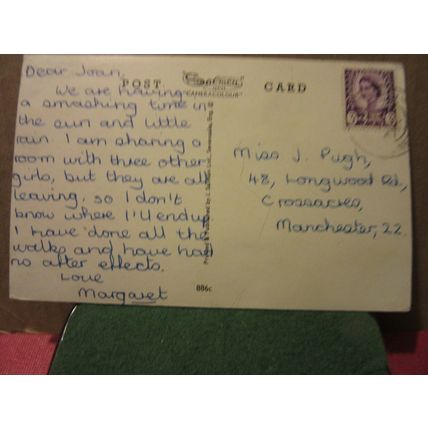 POST CARD
Salmon
"CAMERACOLOUR"
Dear Joan,
We are having
a smashing time in
the sun and little
rain. I am sharing a
room with three other
girls, but they are all
leaving, so I don't
know where I'll end up
I have done all the
walks and have had
no after effects.
Love
Margaret
Miss J. Pugh,
48, Longwood Rd,
Crossacres,
Manchester, 22.
886c